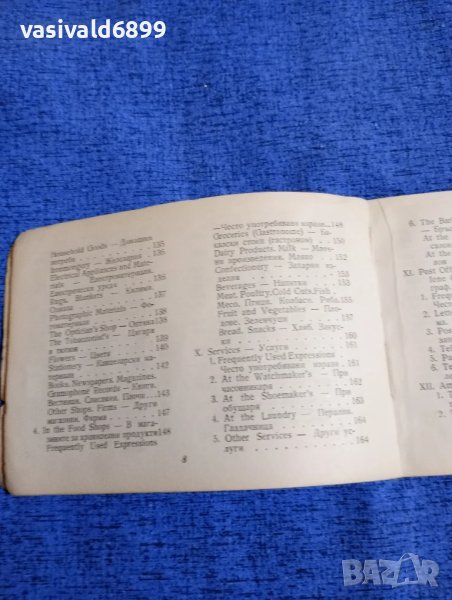 vasivald6899
Household Goods — Домашни
потреби . . . . . 135
Ironmongery — Железария . 135
Electrical Appliances and Mate-
rials — Електроматериали.
Електрически уреди . . . 136
Rugs, Blankets — Килими.
Одеяла . . . . . 137
Photographic Materials — Фо-
томатериали . . . . 138
The Optician's Shop — Оптика
The Tobacconist's — Цигари
и тютюн
Flowers — Цветя . . . 140
Stationery — Канцеларски ма-
териали . . . . 142
Books. Newspapers. Magazines.
Gramophone Records — Книги.
Вестници. Списания. Плочи . 143
Other Shops. Items — Други
магазини. Фирми . . . 147
4. In the Food Shops — В мага-
зините за хранителни продукти 148
Frequently Used Expressions
8
—Често употребявани изрази . 148
Groceries (Gastronome) — Ба-
калски стоки (гастроном) . 150
Dairy Products. Milk — Млеч-
ни произведения. Мляко . . 152
Confectionery — Захарни из-
делия . . . . 153
Beverages — Напитки . . 153
Meat. Poultry. Cold Cuts. Fish.
Месо. Птици. Колбаси. Риба. 155
Fruit and Vegetables — Пло-
дове. Зеленчуци . . . 157
Bread. Snacks — Хляб. Закус-
ки . . . . . 160
X. Services — Услуги . . . 161
1. Frequently Used Expressions
Често употребявани изрази . 161
2. At the Watchmaker's — При
часовникаря . . . . 162
3. At the Shoemaker's — При
обущаря . . . . 163
4. At the Laundry — Пералня.
Гладачница . . . . 164
5. Other Services — Други ус-
луги . . . . . 164
6. The Bar
— Бръс
At the
At the
вов
XI. Post Offi
граф.
1. Freq
Често
2. Lette
ма.
3. Po
4. Te
5. Te
6. Pa
XII. Am
1. T
BAZAR
bazar.bg